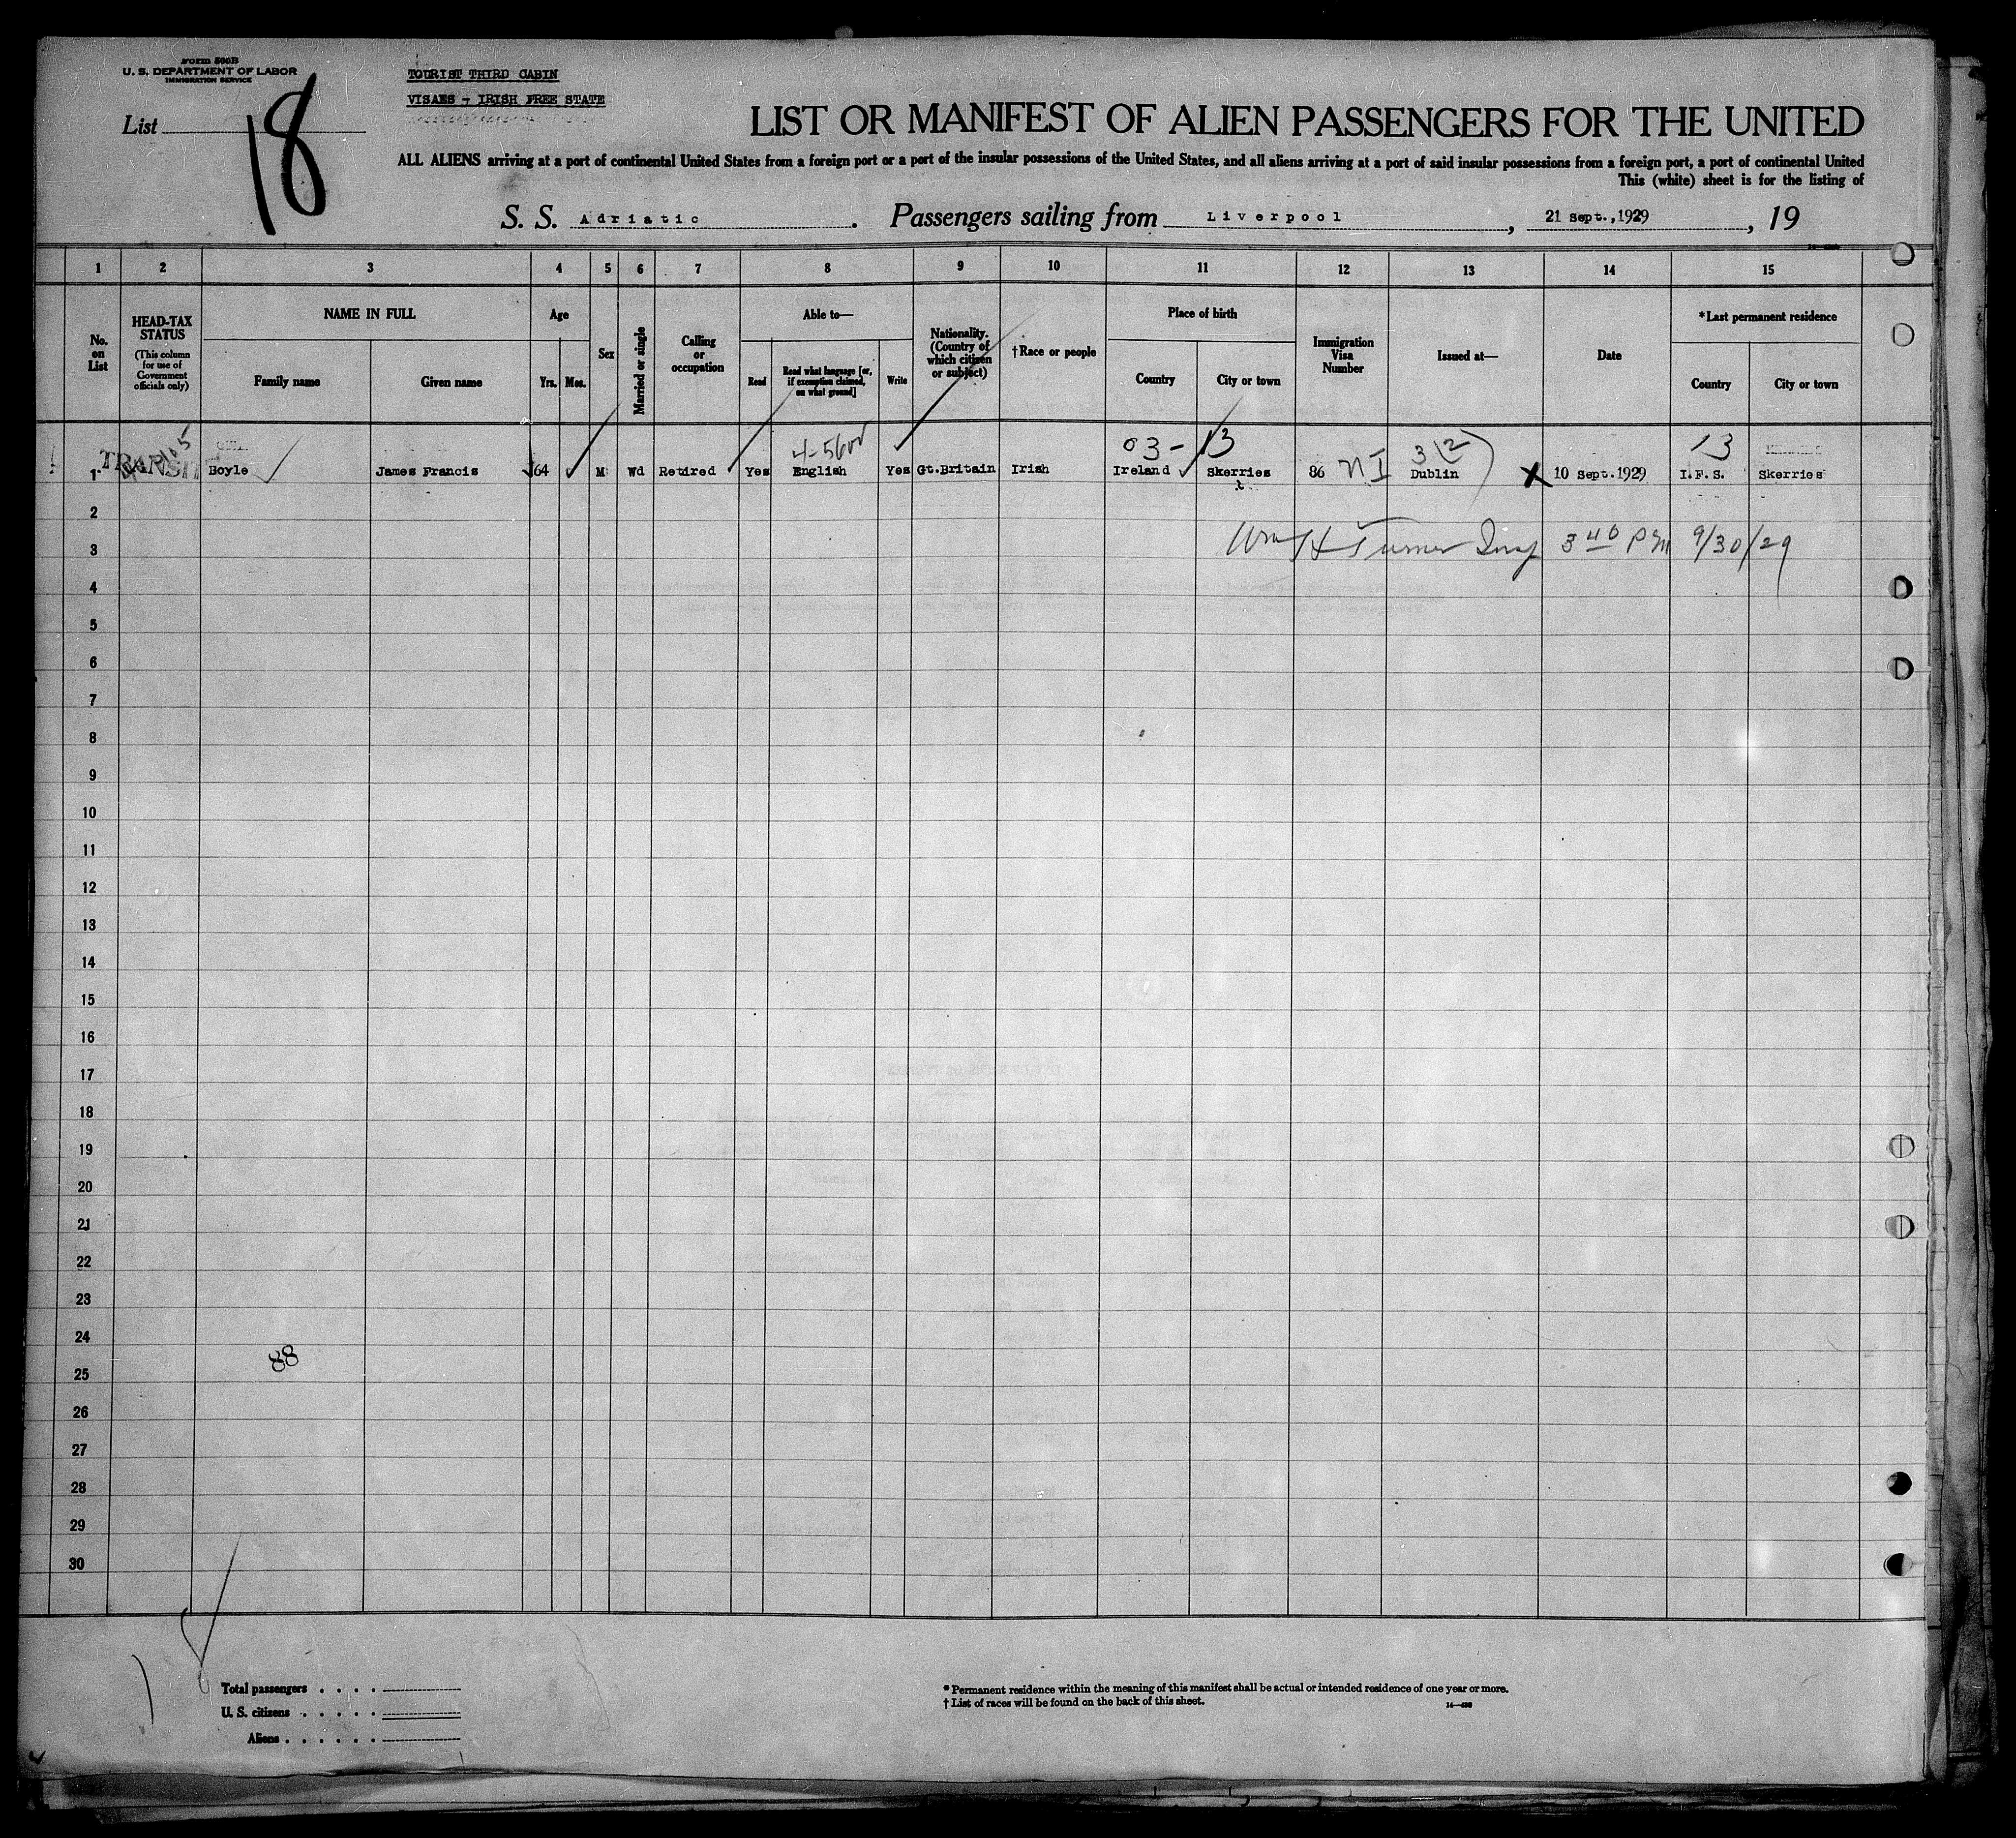 Form 500B
U. S. DEPARTMENT OF LABOR
IMMIGRATION SERVICE
List
18
TOURIST THIRD CABIN
VISAES - IRISH FREE STATE
LIST OR MANIFEST OF ALIEN PASSENGERS FOR THE UNITED
ALL ALIENS arriving at a port of continental United States from a foreign port or a port of the insular possessions of the United States, and all aliens arriving at a port of said insular possessions from a foreign port, a port of continental United
This (white) sheet is for the listing of
S. S. Adriatic. Passengers sailing from Liverpool, 21 Sept., 1929, 19
1 2 3 4 5 6 7 8 9 10 11 12 13 14 15
No. on List
HEAD-TAX STATUS
(This column for use of Government officials only)
NAME IN FULL
Family name
Given name
Age
Yrs. Mos.
Sex
Married or single
Calling or occupation
Able to—
Read
Read what language [or, if exemption claimed, on what ground]
Write
Nationality. (Country of which citizen or subject)
†Race or people
Place of birth
Country
City or town
Immigration Visa Number
Issued at—
Date
*Last permanent residence
Country
City or town
03- 13 3(2) 13
1 TRANSIT Boyle James Francis 64 M Wd Retired Yes English Yes Gt.Britain Irish Ireland Skerries 86 NI Dublin X 10 Sept.1929 I.F.S. Skerries
2
3 Wm H Turner Insp 3 40 PM 9/30/29
4
5
6
7
8
9
10
11
12
13
14
15
16
17
18
19
20
21
22
23
24
88
25
26
27
28
29
30
Total passengers
U. S. citizens
Aliens
* Permanent residence within the meaning of this manifest shall be actual or intended residence of one year or more.
† List of races will be found on the back of this sheet.